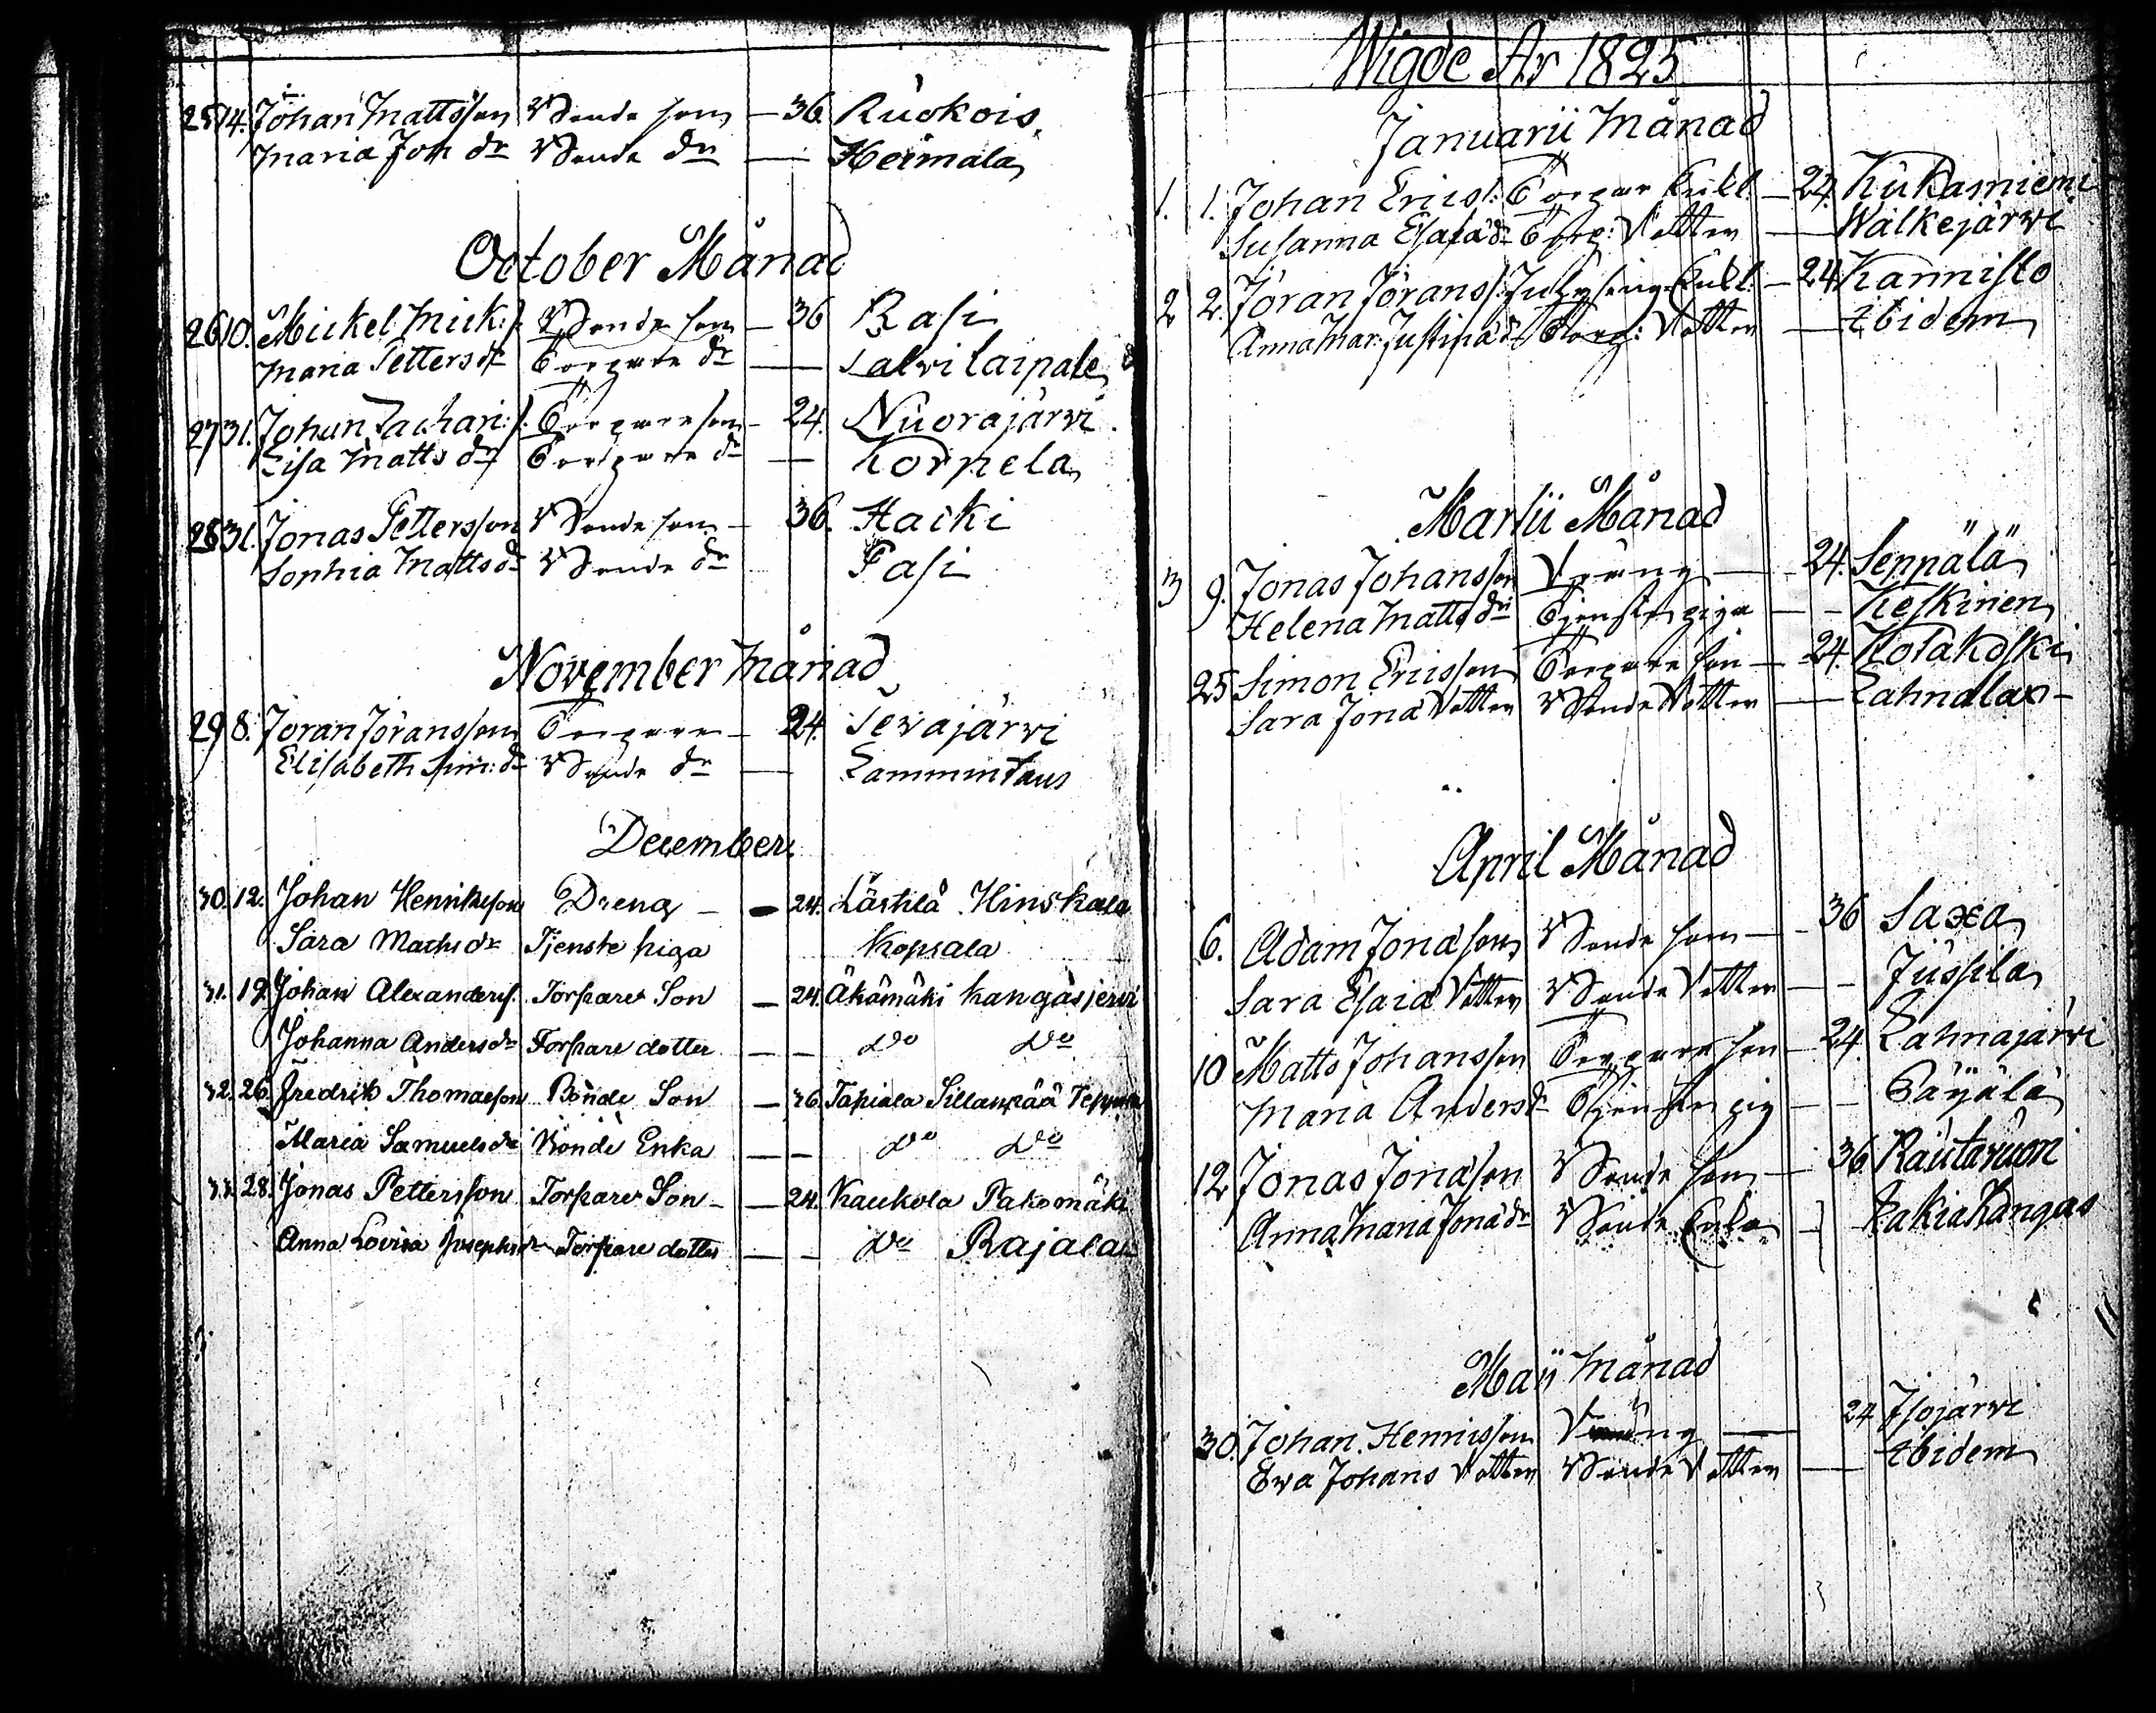 25 14. Johan Mattsson Bonde son — 36. Ruokois
Maria Joh dr Bonde dr — Heimala
October Månad
26 10. Mickel Mick: s. Bonde son — 36 Rasi
Maria Petters dr Torpare dr — Salvilaipale
27 31. Johan Zachari: s. Torpare son — 24. Nuorajärvi
Lisa Matts dr Torpare dr — Korpela
28 31. Jonas Pettersson Bonde son — 36. Hacki
Sophia Matts dr Bonde dr Pasi
November Månad
29 8. Jöran Jöransson Torpare — 24. Sevajärvi
Elisabeth Sim: dr Bonde dr — Lammintaus
December
30. 12. Johan Henriksson Dreng — 24. Lästilä Hinskala
Sara Maths dr Tjenste piga Kopsala
31. 19. Johan Alexanders. Torpare Son — 24. Äkämäki Kangasjervi
Johanna Anders dr Torpare dotter — — Do Do
32. 26. Fredrik Thomasson Bonde Son — 36. Tapiala Sillanpää
Maria Samuels dr Bonde Enka — — Do Do
33. 28. Jonas Pettersson Torpare Son — 24. Kaukola Pakomäki
Anna Lovisa Josephs dr Torpare dotter — — Do Rajala
Wigde År 1825
Januarii Månad
1. 1. Johan Erics: Torpar Enkl. — 24. Kukasniemi
Susanna Esaia dr Torp: Dotter — Walkejärvi
2 2. Jöran Jörans s. Inhysing Enkl. — 24 Kannisto
Anna Mar: Justina dr Torp: Dotter — Ibidem
Martii Månad
3 9. Jonas Johansson Dräng — 24. Seppälä
Helena Matts dr Tjenste piga — Keskinen
25 Simon Ericsson Torpare son — 24. Kotakoski
Sara Jona Dotter Bonde Dotter — Lahnalax
April Månad
6. Adam Jonasson Bonde son — 36 Saxa
Sara Esaiæ Dotter Bonde Dotter — Jussila
10 Matts Johansson Torpare son — 24. Lahnajärvi
Maria Anders dr Tjenste pig — Päyälä
12 Jonas Jonasson Bonde son — 36. Rautavuori
Anna Maria Jona dr Bonde Enka — Kakiakangas
Maji Månad
30. Johan Henricsson Dräng — 24 Isojärvi
Ewa Johans Dotter Bonde Dotter — Ibidem